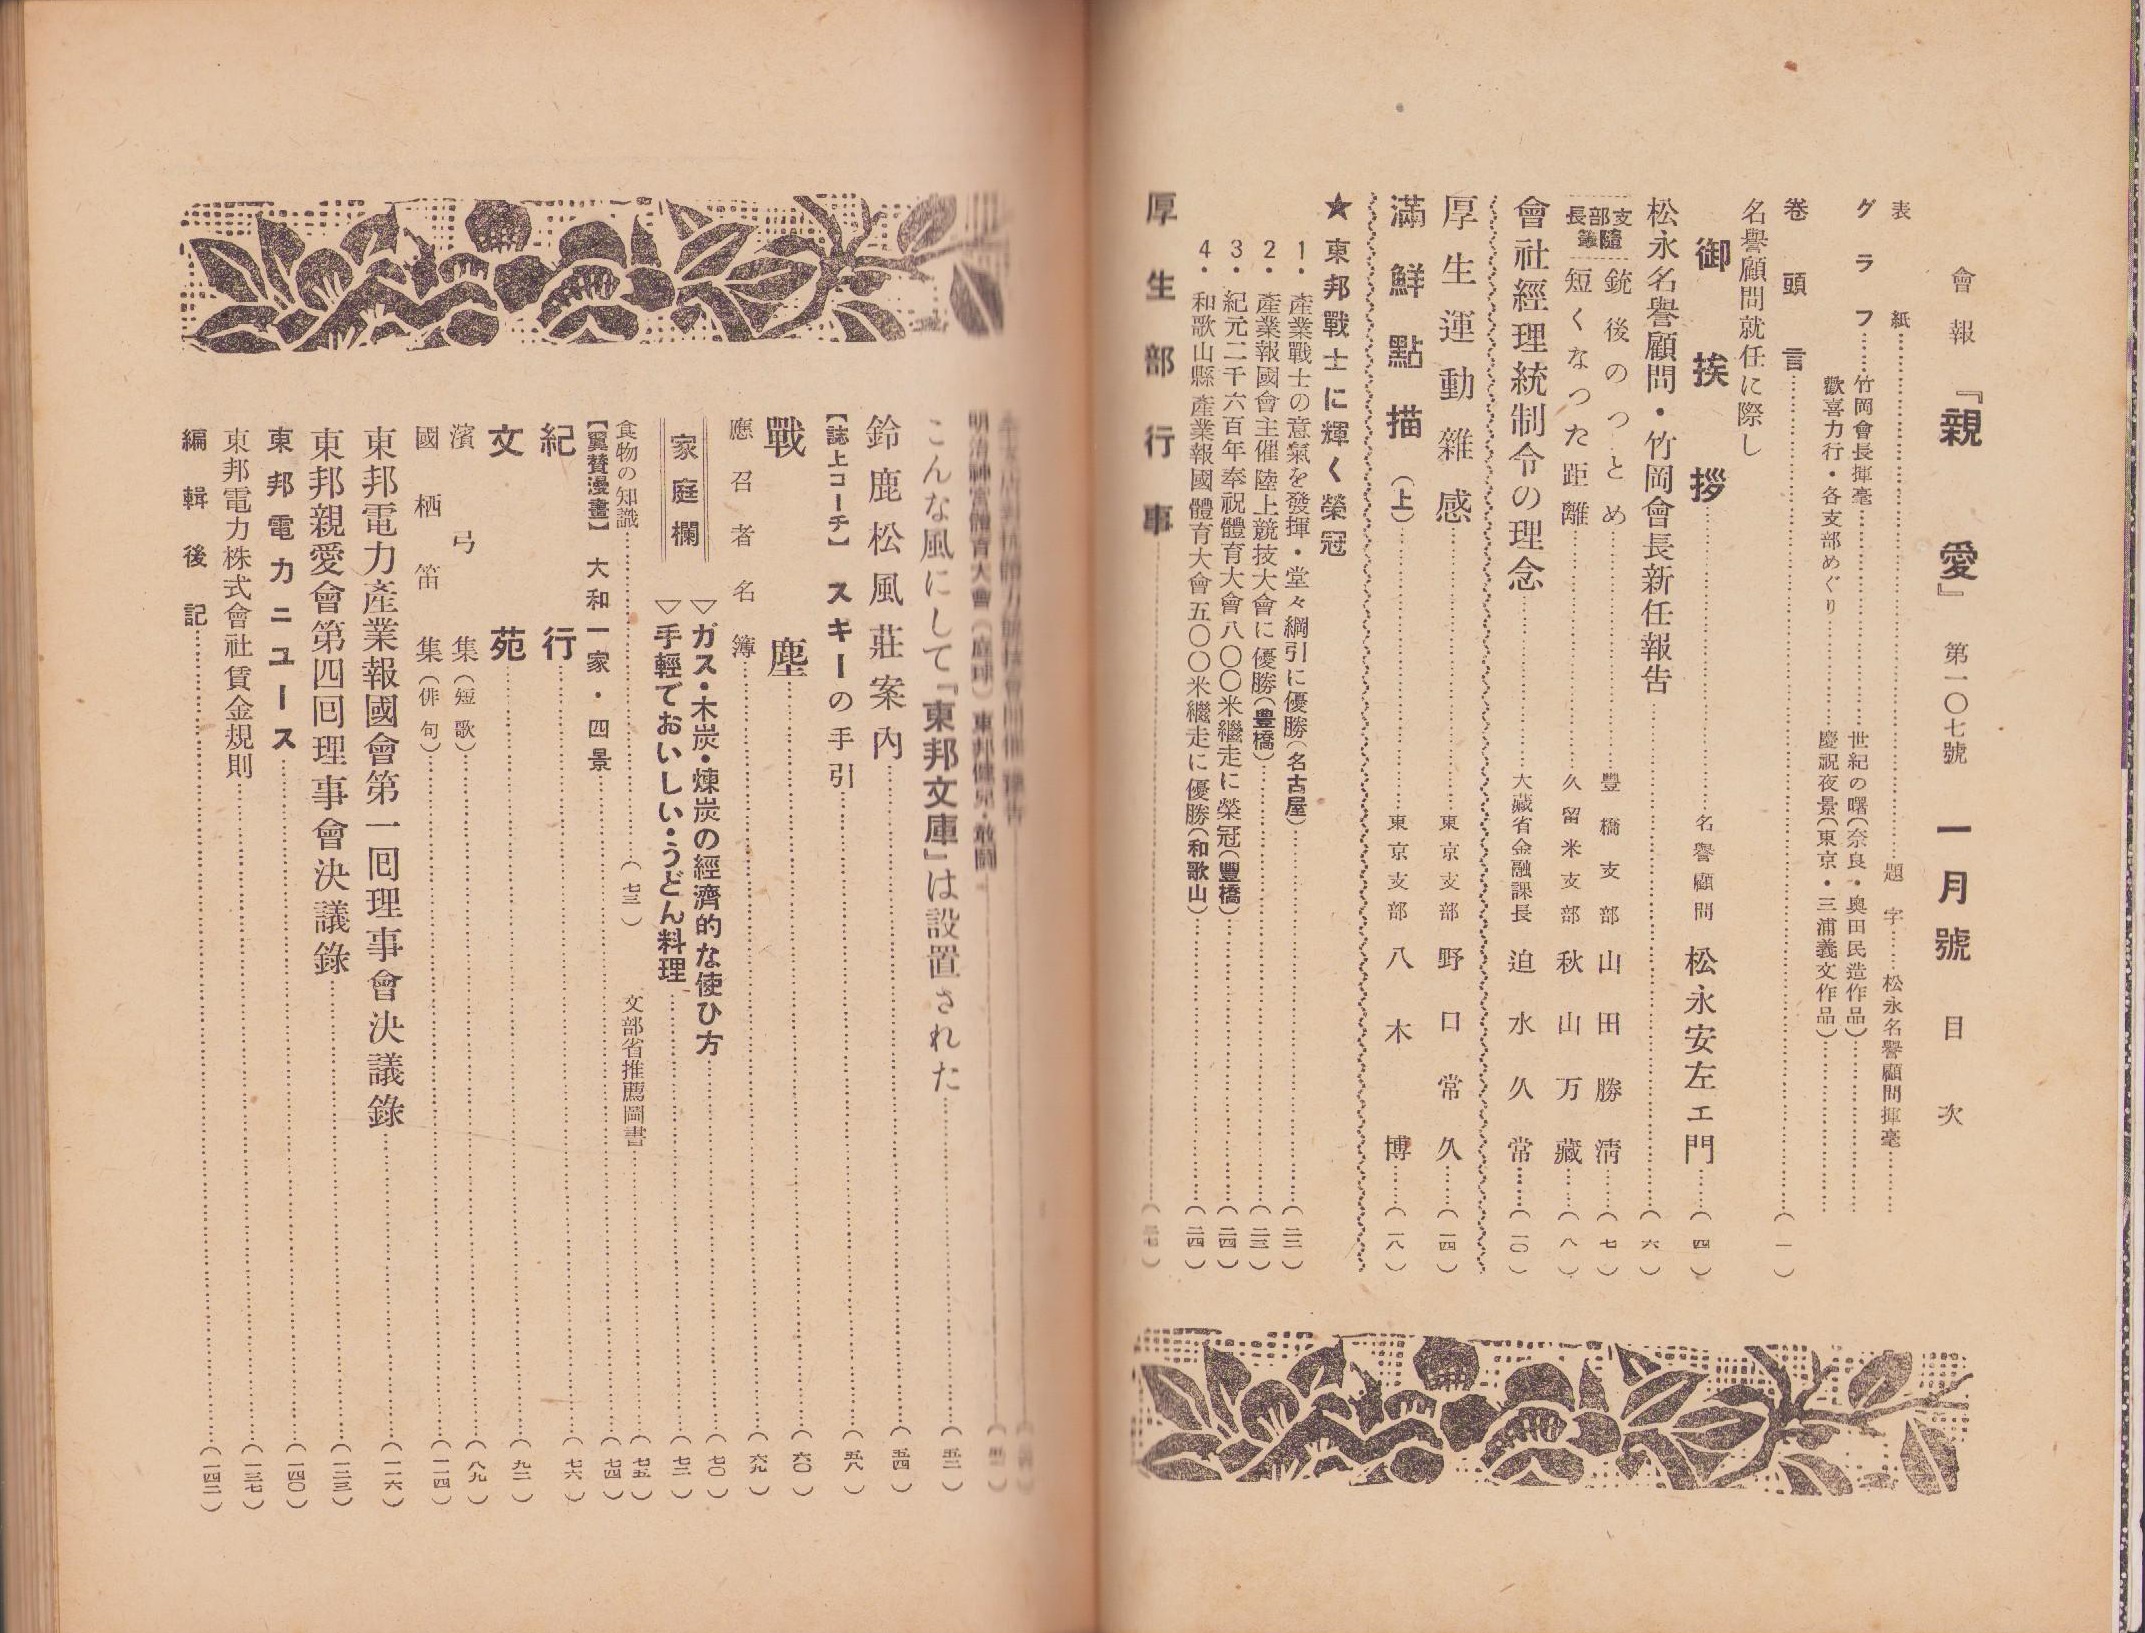 會報『親愛』第一〇七號 一月號 目次
表紙……題字……松永名譽顧問揮毫……
グラフ……竹岡會長揮毫……世紀の曙(奈良・奥田民造作品)……
歡喜力行・各支部めぐり……慶祝夜景(東京・三浦義文作品)……
卷頭言……(一)
名譽顧問就任に際し
御挨拶……名譽顧問 松永安左エ門……(四)
松永名譽顧問・竹岡會長新任報告……(六)
支部長隨筆
銃後のつとめ……豐橋支部 山田勝淸……(七)
短くなつた距離……久留米支部 秋山万藏……(八)
會社經理統制令の理念……大藏省金融課長 迫水久常……(一〇)
厚生運動雜感……東京支部 野口常久……(一四)
滿鮮點描(上)……東京支部 八木博……(一八)
★東邦戰士に輝く榮冠
1・產業戰士の意氣を發揮・堂々綱引に優勝(名古屋)……(二二)
2・產業報國會主催陸上競技大會に優勝(豊橋)……(二三)
3・紀元二千六百年奉祝體育大會八〇〇米繼走に榮冠(豐橋)……(二四)
4・和歌山縣產業報國體育大會五〇〇米繼走に優勝(和歌山)……(二四)
厚生部行事……(二七)
明治神宮體育大會(庭球)東邦健兒・敢鬪……
こんな風にして『東邦文庫』は設置された……(五二)
鈴鹿松風莊案內……(五四)
【誌上コーチ】スキーの手引……(五八)
戰塵……(六〇)
應召者名簿……(六九)
家庭欄
▽ガス・木炭・煉炭の經濟的な使ひ方……(七〇)
▽手輕でおいしい・うどん料理……(七二)
食物の知識……(七三) 文部省推薦圖書……(七五)
【翼賛漫畫】大和一家・四景……(七四)
紀行……(七六)
文苑……(九二)
濱弓集(短歌)……(八九)
國栖笛集(俳句)……(一一四)
東邦電力產業報國會第一囘理事會決議錄……(一一六)
東邦親愛會第四囘理事會決議錄……(一二三)
東邦電力ニユース……(一四〇)
東邦電力株式會社賃金規則……(一三七)
編輯後記……(一四二)